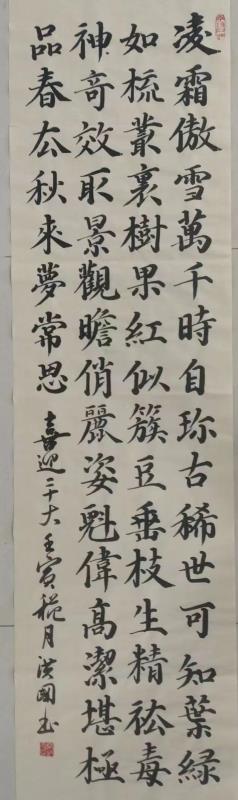 凌霜傲雪萬千時自珎古稀世可知葉緑
如梳叢裏樹果紅似簇豆垂枝生精祛毒
神奇效取景觀瞻俏麗姿魁偉高潔堪極
品春厺秋來夢常思
喜迎二十大壬寅月洪國书